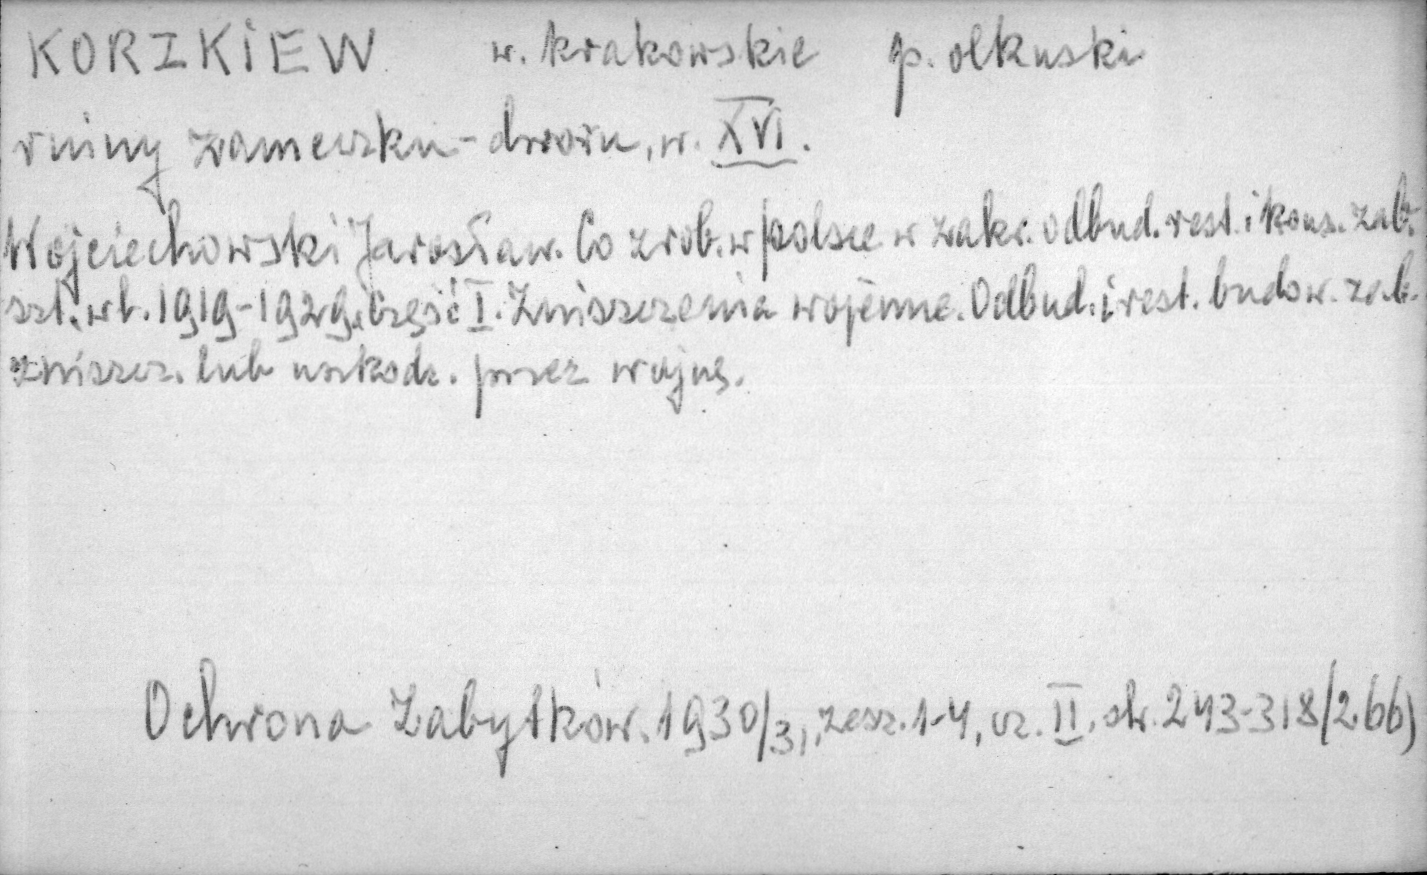 KORZKIEW w. krakowskie p. olkuski
ruiny zameczku-dworu, w. XVI.
Wojciechowski Jarosław. Co zrob. w polsce w zakr. odbud. rest. i kons. zab.
szt. w l. 1919-1929. Część I. Zniszczenia wojenne. Odbud. i rest. budow. zab.
zniszcz. lub uszkodz. przez wojnę.
Ochrona Zabytków. 1930/31, zesz. 1-4, cz. II. str. 243-318/266)